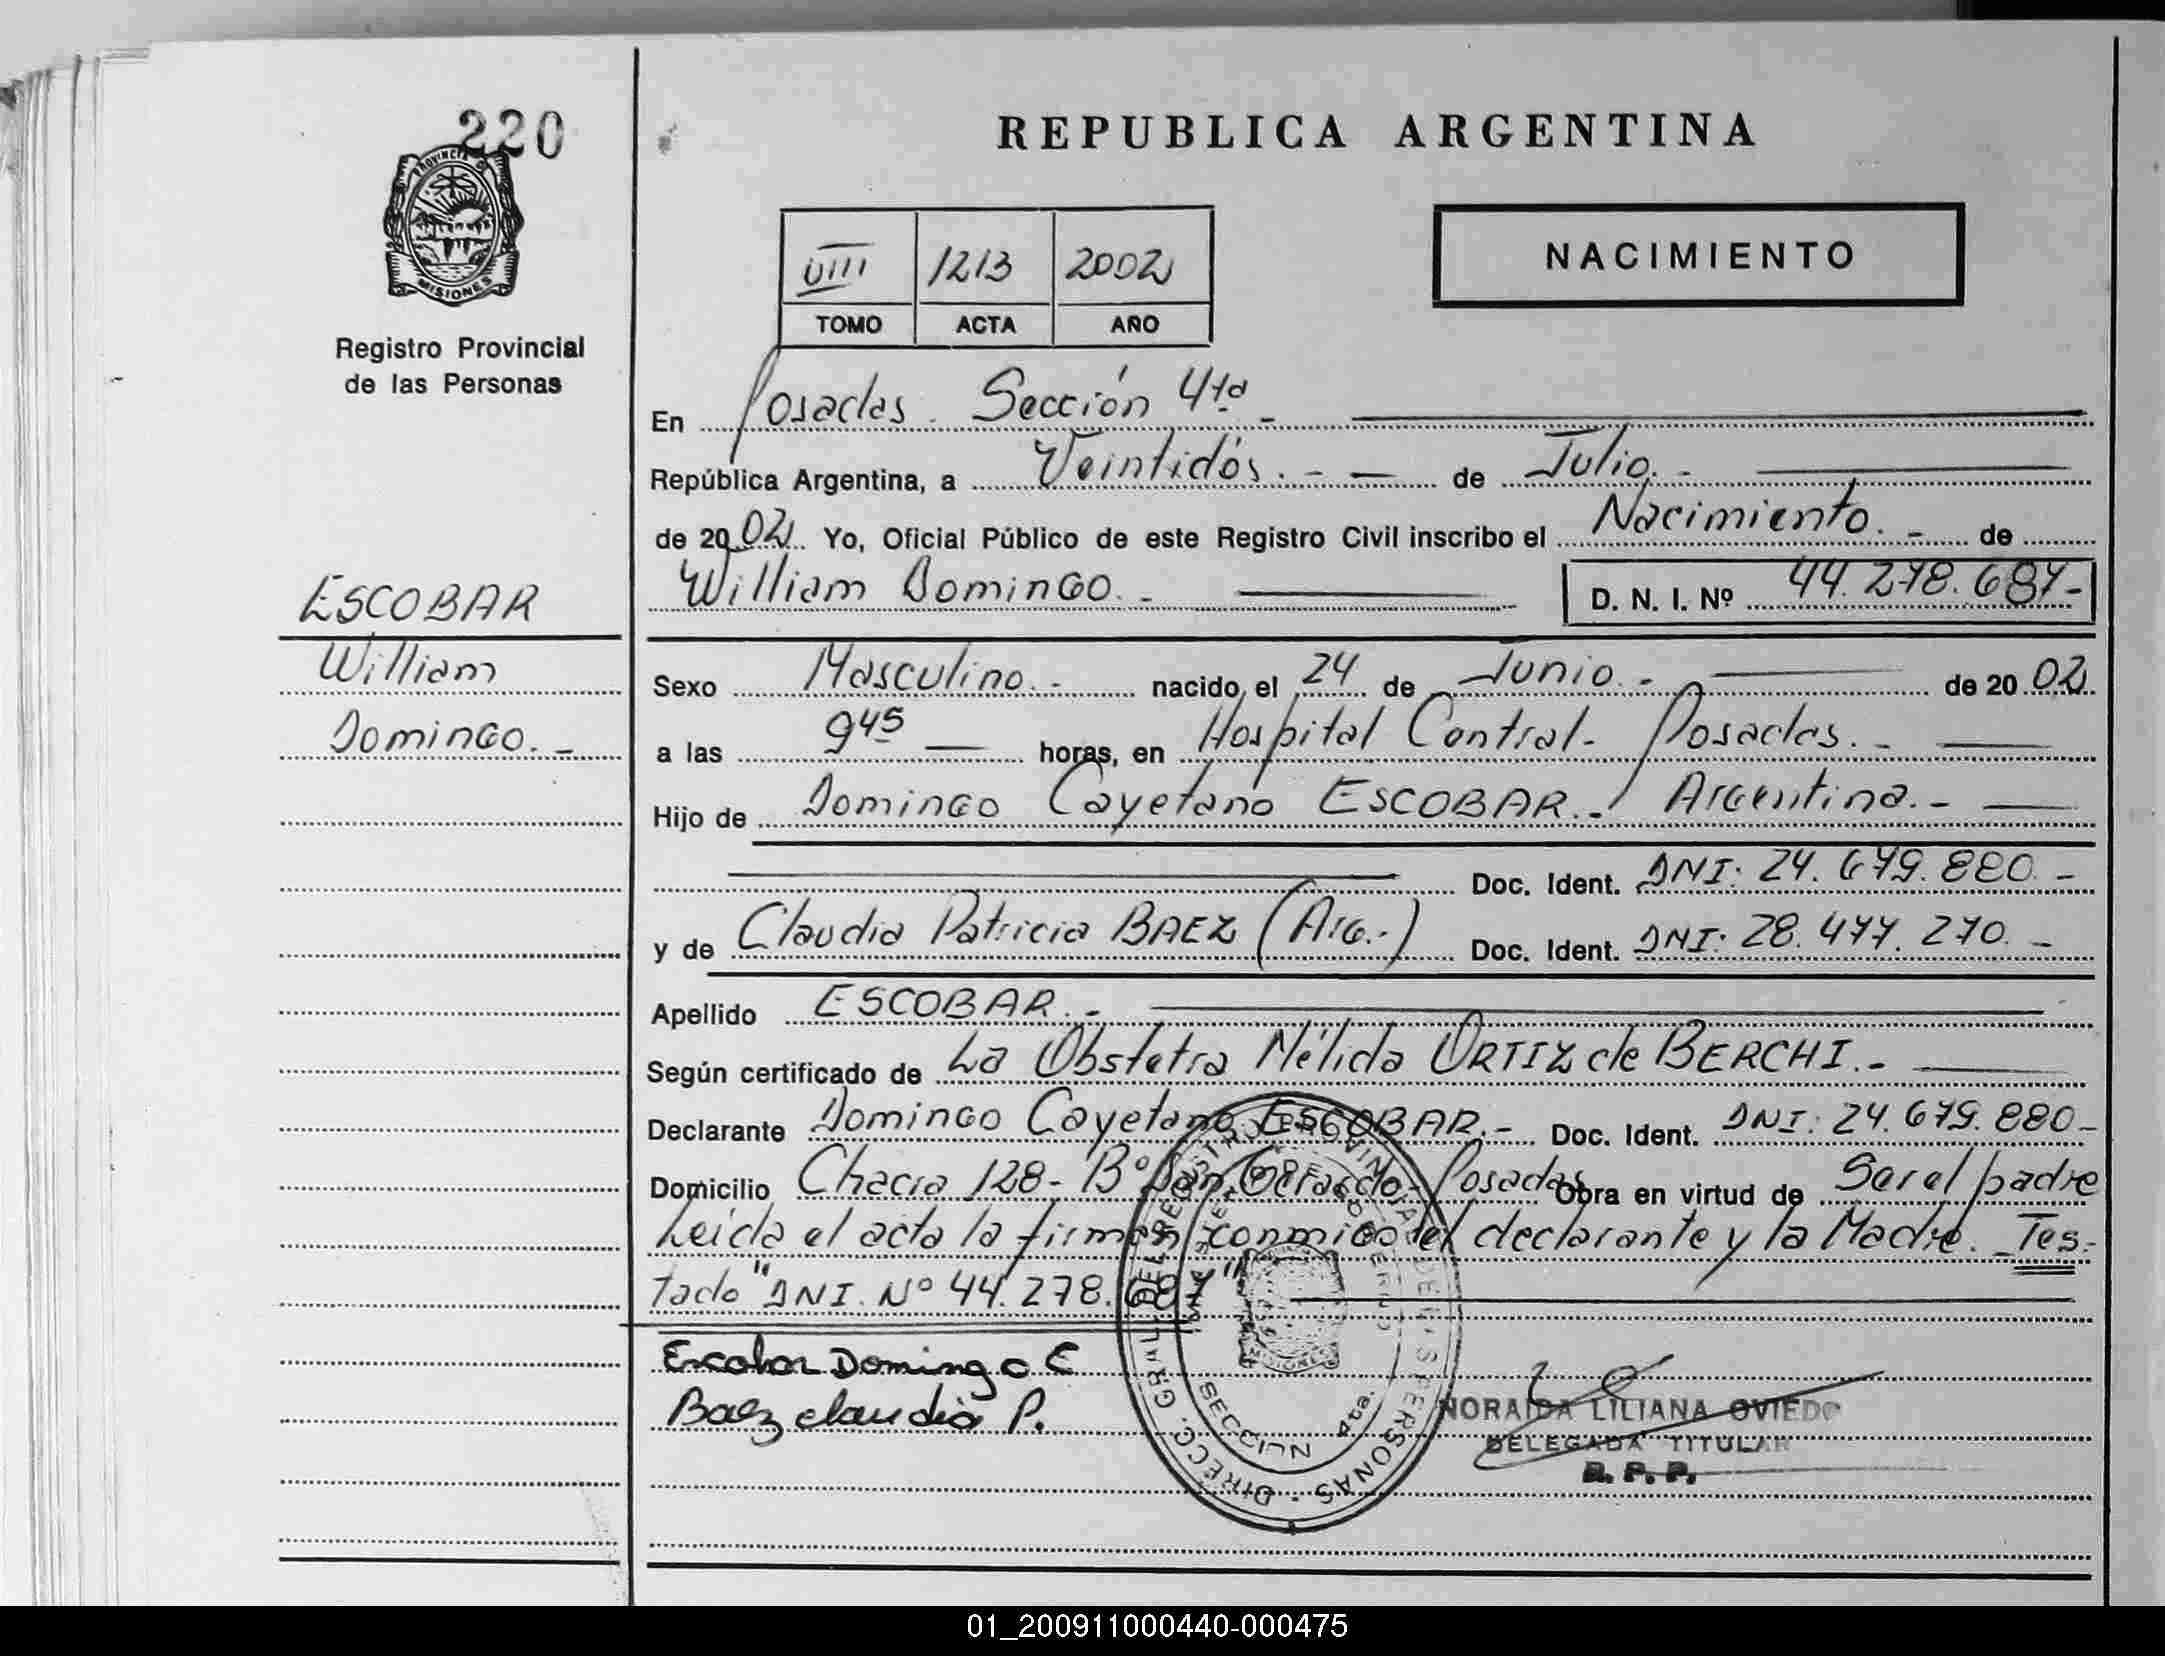 220
PROVINCIA DE
MISIONES
Registro Provincial
de las Personas
ESCOBAR
William
Domingo.-
REPUBLICA ARGENTINA
NACIMIENTO
VIII 1213 2002
TOMO ACTA AÑO
En Posadas. Sección 4ta-
República Argentina, a Veintidós.- - de Julio.-
de 2002. Yo, Oficial Público de este Registro Civil inscribo el Nacimiento.- de
William Domingo.- D. N. I. Nº 44.278.687-
Sexo Masculino.- nacido, el 24 de Junio.- de 2002
a las 9 45 horas, en Hospital Central- Posadas.-
Hijo de Domingo Cayetano ESCOBAR.- Argentina.-
Doc. Ident. DNI: 24.679.880.-
y de Claudia Patricia BAEZ (Arg.-) Doc. Ident. DNI: 28.477.270.-
Apellido ESCOBAR.-
Según certificado de La Obstetra Nélida ORTIZ de BERCHI.-
Declarante Domingo Cayetano ESCOBAR.- Doc. Ident. DNI: 24.679.880-
Domicilio Chacra 128- Bº San Gerardo- Posadas Obra en virtud de Ser el padre
Leída el acta la firman conmigo el declarante y la Madre.- Tes-
tado "DNI. Nº 44.278.687"
Escobar Domingo C
Baez claudia P.
DIRECC. GRAL. DEL REGISTRO PROVINCIAL DE LAS PERSONAS
SECCION 4ta.
MISIONES
NORAIDA LILIANA OVIEDO
DELEGADA TITULAR
R. P. P.
01_200911000440-000475